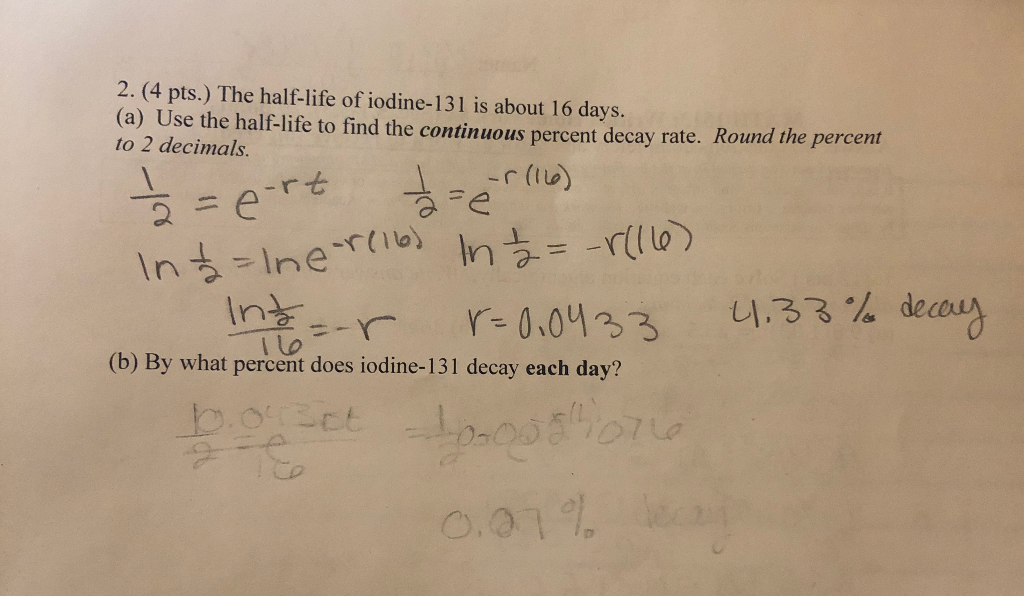 2. (4 pts.) The half-life of iodine-131 is about 16 days.
(a) Use the half-life to find the continuous percent decay rate. Round the percent
to 2 decimals.
1/2 = e^-rt 1/2 = e^-r(16)
ln 1/2 = ln e^-r(16) ln 1/2 = -r(16)
ln 1/2 / 16 = -r r = 0.0433 4.33 % decay
(b) By what percent does iodine-131 decay each day?
0.27 % decay